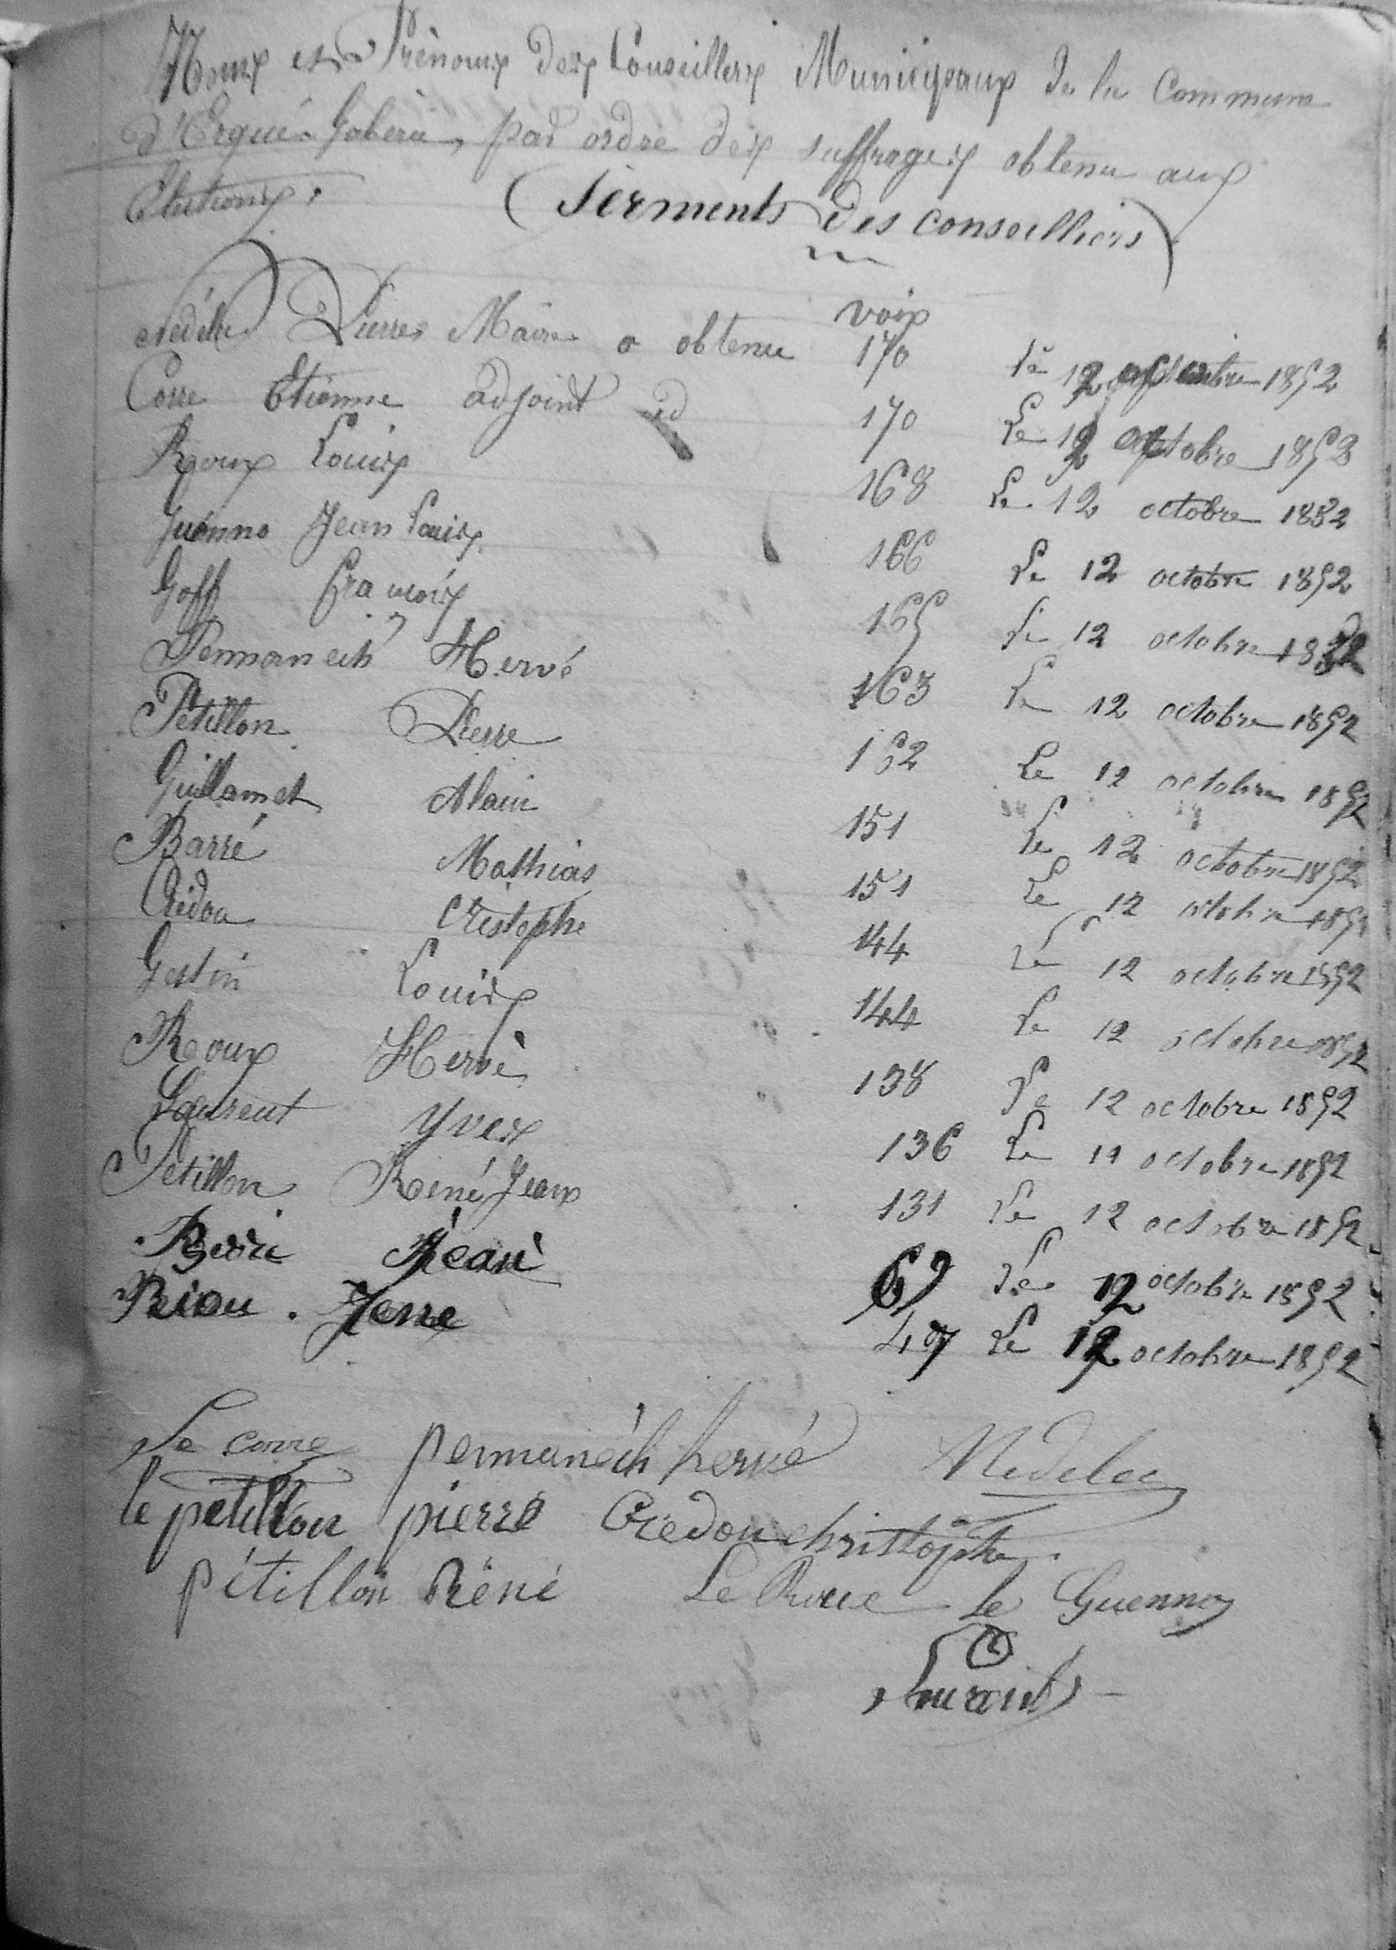 Noms et Prénoms des Conseillers Municipaux de la Commune
d'Ergué-Gabéric, par ordre des suffrages obtenu aux
Elections.
(Serments des conseilliers)
voix
Nédélec Pierre Maire a obtenu 170 le 12 octobre 1852
Corre Etienne adjoint id 170 Le 12 octobre 1852
Roux Louis 168 Le 12 octobre 1852
Guénno Jean Louis 166 Le 12 octobre 1852
Goff François 165 Le 12 octobre 1852
Pennanech Hervé 163 Le 12 octobre 1852
Pétillon Pierre 162 Le 12 octobre 1852
Guillamet Alain 151 Le 12 octobre 1852
Barré Mathias 151 Le 12 octobre 1852
Crédou Cristophe 144 Le 12 octobre 1852
Gestin Louis 144 Le 12 octobre 1852
Roux Hervé 138 Le 12 octobre 1852
Laurent Yves 136 Le 12 octobre 1852
Pétillon René Jean 131 Le 12 octobre 1852
Jean 69 Le 12 octobre 1852
Riou 47 Le 12 octobre 1852
Le corre pennanéch hervé Nedelec
le petillon pierre Credou christophe
pétillon Réné Le Roux le Guenno
Laurent